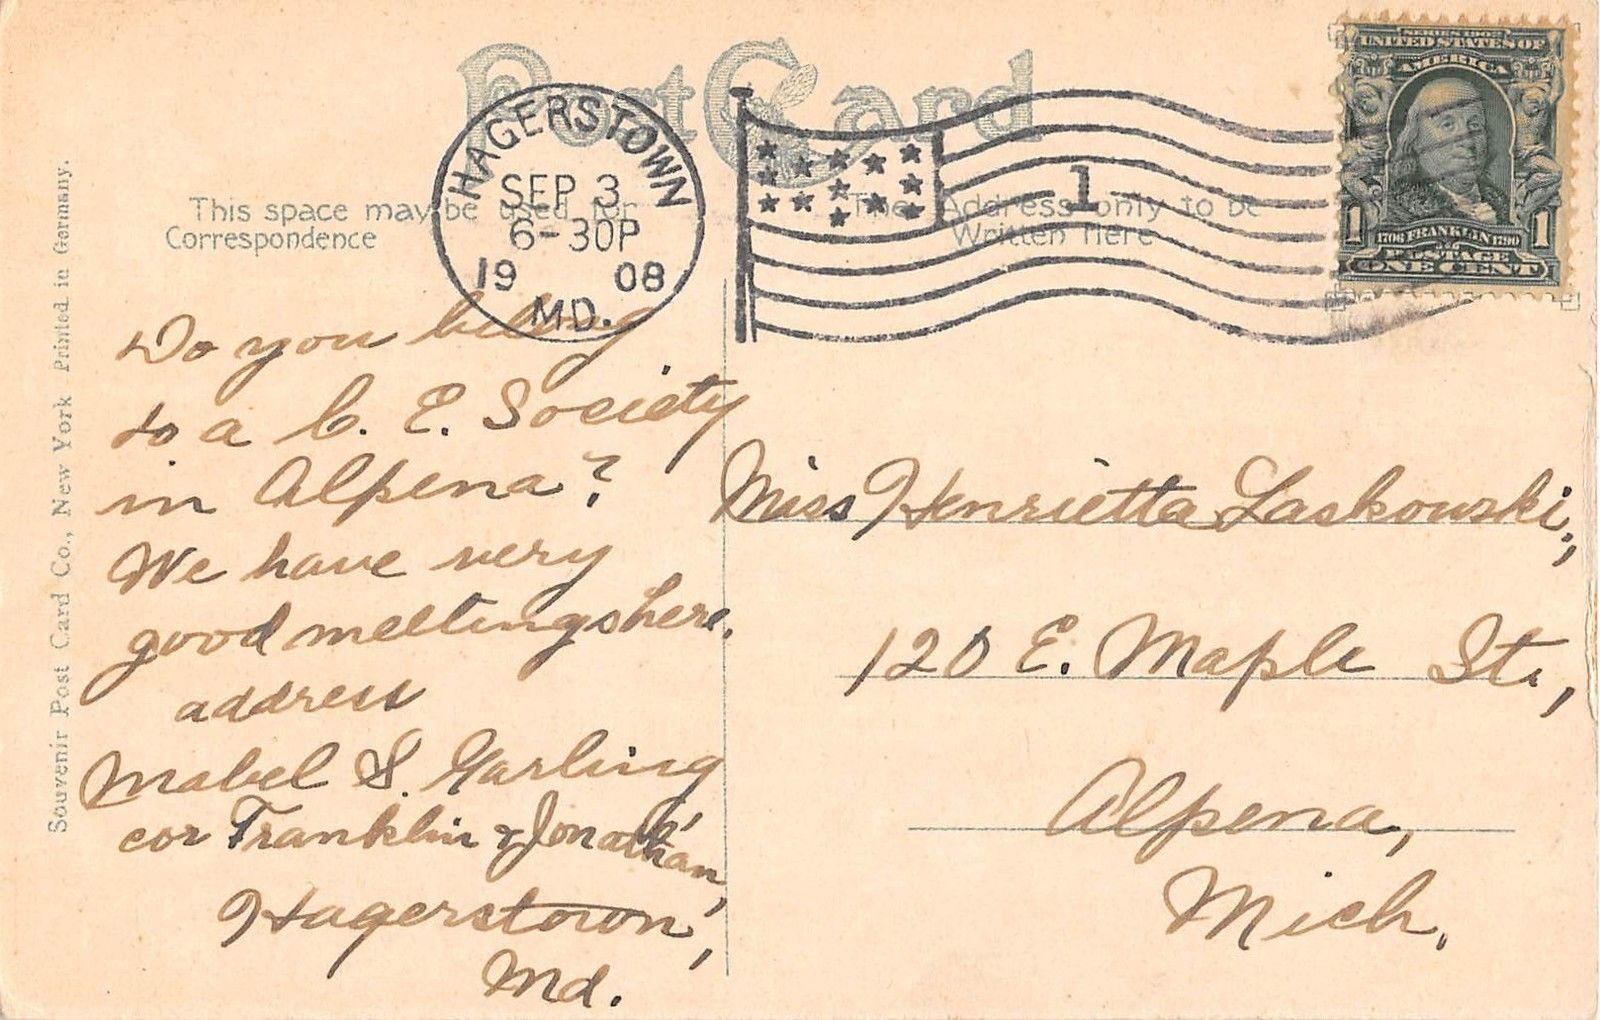 Post Card
This space may be used for
Correspondence
The Address only to be
Written Here
HAGERSTOWN
SEP 3
6-30P
19 08
MD.
1
SERIES 1902
UNITED STATES OF
AMERICA
1 1
1706 FRANKLIN 1790
POSTAGE
ONE CENT
Souvenir Post Card Co., New York Printed in Germany.
Do you belong
to a C. E. Society
in Alpena?
We have very
good meetings here.
address
Mabel S. Garling
cor Franklin & Jonathan,
Hagerstown,
Md.
Miss Henrietta Laskowski,
120 E. Maple St.,
Alpena,
Mich.